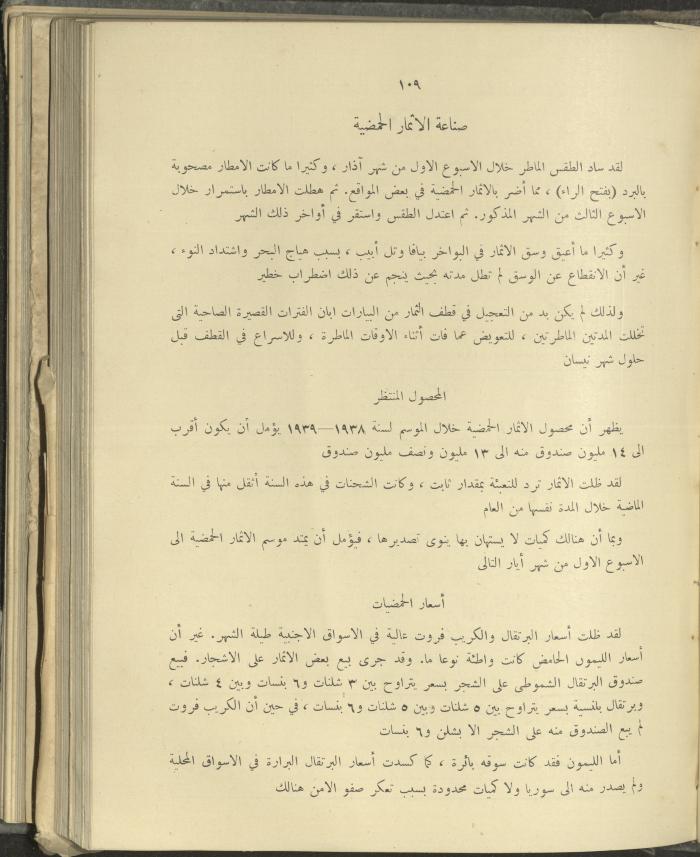 ١٠٩
صناعة الاثمار الحمضية
لقد ساد الطقس الماطر خلال الاسبوع الاول من شهر آذار ، وكثيرا ما كانت الامطار مصحوبة
بالبرد (بفتح الراء) ، مما أضر بالاثمار الحمضية في بعض المواقع. ثم هطلت الامطار باستمرار خلال
الاسبوع الثالث من الشهر المذكور. ثم اعتدل الطقس واستقر في أواخر ذلك الشهر
وكثيرا ما أعيق وسق الاثمار في البواخر بيافا وتل أبيب ، بسبب هياج البحر واشتداد النوء ،
غير أن الانقطاع عن الوسق لم تطل مدته بحيث ينجم عن ذلك اضطراب خطير
ولذلك لم يكن بد من التعجيل في قطف الثمار من البيارات ابان الفترات القصيرة الصاحية التي
تخللت المدتين الماطرتين ، للتعويض عما فات أثناء الاوقات الماطرة ، وللاسراع في القطف قبل
حلول شهر نيسان
المحصول المنتظر
يظهر أن محصول الاثمار الحمضية خلال الموسم لسنة ١٩٣٨—١٩٣٩ يؤمل أن يكون أقرب
الى ١٤ مليون صندوق منه الى ١٣ مليون ونصف مليون صندوق
لقد ظلت الاثمار ترد للتعبئة بمقدار ثابت ، وكانت الشحنات في هذه السنة أثقل منها في السنة
الماضية خلال المدة نفسها من العام
وبما أن هنالك كميات لا يستهان بها ينوى تصديرها ، فيؤمل أن يمتد موسم الاثمار الحمضية الى
الاسبوع الاول من شهر أيار التالى
أسعار الحمضيات
لقد ظلت أسعار البرتقال والكريب فروت عالية في الاسواق الاجنبية طيلة الشهر. غير أن
أسعار الليمون الحامض كانت واطئة نوعا ما. وقد جرى بيع بعض الاثمار على الاشجار. فبيع
صندوق البرتقال الشموطى على الشجر بسعر يتراوح بين ٣ شلنات و٦ بنسات وبين ٤ شلنات ،
وبرتقال بلنسية بسعر يتراوح بين ٥ شلنات وبين ٥ شلنات و٦ بنسات ، في حين أن الكريب فروت
لم يبع الصندوق منه على الشجر الا بشلن و٦ بنسات
أما الليمون فقد كانت سوقه بائرة ، كما كسدت أسعار البرتقال البرارة في الاسواق المحلية
ولم يصدر منه الى سوريا ولا كميات محدودة بسبب تعكر صفو الامن هنالك